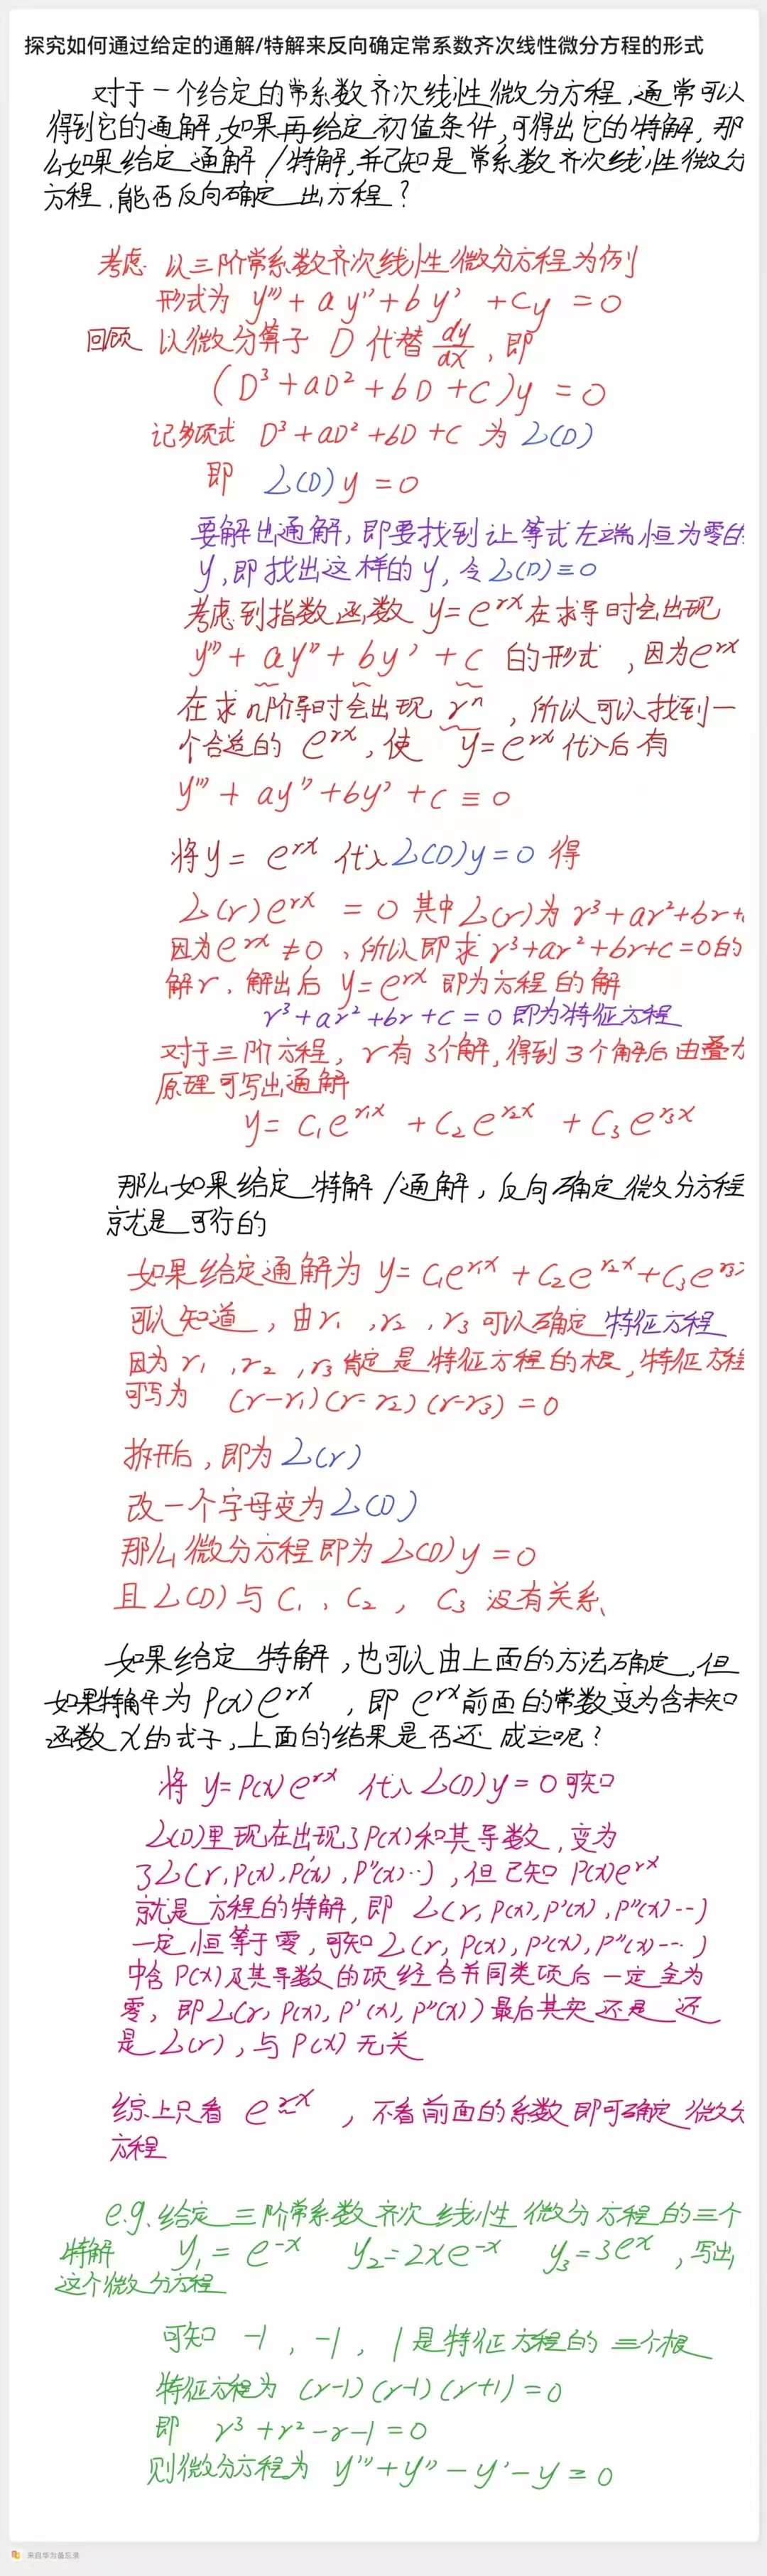 探究如何通过给定的通解/特解来反向确定常系数齐次线性微分方程的形式
对于一个给定的常系数齐次线性微分方程,通常可以
得到它的通解,如果再给定初值条件,可得出它的特解,那
么如果给定通解/特解,并已知是常系数齐次线性微分
方程,能否反向确定出方程?
考虑 以三阶常系数齐次线性微分方程为例
形式为 y'''+ay''+by'+cy=0
回顾 以微分算子 D 代替 dy/dx,即
(D³+aD²+bD+C)y=0
记多项式 D³+aD²+bD+C 为 L(D)
即 L(D)y=0
要解出通解,即要找到让等式左端恒为零的
y,即找出这样的y,令L(D)≡0
考虑到指数函数 y=e^{rx}在求导时会出现
y'''+ay''+by'+c 的形式,因为e^{rx}
在求n阶导时会出现 rⁿ,所以可以找到一
个合适的 e^{rx},使 y=e^{rx}代入后有
y'''+ay''+by'+c≡0
将y=e^{rx} 代入L(D)y=0 得
L(r)e^{rx}=0 其中L(r)为 r³+ar²+br+c
因为e^{rx}≠0,所以即求 r³+ar²+br+c=0的
解r,解出后 y=e^{rx}即为方程的解
r³+ar²+br+c=0即为特征方程
对于三阶方程,r有3个解,得到3个解后由叠加
原理可写出通解
y=C₁e^{r₁x}+C₂e^{r₂x}+C₃e^{r₃x}
那么如果给定特解/通解,反向确定微分方程
就是可行的
如果给定通解为 y=C₁e^{r₁x}+C₂e^{r₂x}+C₃e^{r₃x}
可以知道,由r₁,r₂,r₃可以确定特征方程
因为r₁,r₂,r₃肯定是特征方程的根,特征方程
可写为 (r-r₁)(r-r₂)(r-r₃)=0
拆开后,即为L(r)
改一个字母变为L(D)
那么微分方程即为L(D)y=0
且L(D)与C₁、C₂,C₃没有关系、
如果给定特解,也可以由上面的方法确定,但
如果特解为 P(x)e^{rx},即 e^{rx}前面的常数变为含未知
函数x的式子,上面的结果是否还成立呢?
将 y=P(x)e^{rx} 代入L(D)y=0可知
L(D)里现在出现了P(x)和其导数,变为
了L(r,P(x),P'(x),P''(x)…),但已知 P(x)e^{rx}
就是方程的特解,即 L(r,P(x),P'(x),P''(x)…)
一定恒等于零,可知L(r,P(x),P'(x),P''(x)…)
中含P(x)及其导数的项经合并同类项后一定全为
零,即L(r,P(x),P'(x),P''(x))最后其实还是 还
是L(r),与P(x)无关
综上只看 e^{rx},不看前面的系数即可确定微分
方程
e.g.给定三阶常系数齐次线性微分方程的三个
特解 y₁=e^{-x} y₂=2xe^{-x} y₃=3e^x,写出
这个微分方程
可知 -1,-1,1是特征方程的三个根
特征方程为 (r-1)(r-1)(r+1)=0
即 r³+r²-r-1=0
则微分方程为 y'''+y''-y'-y=0
来自华为备忘录